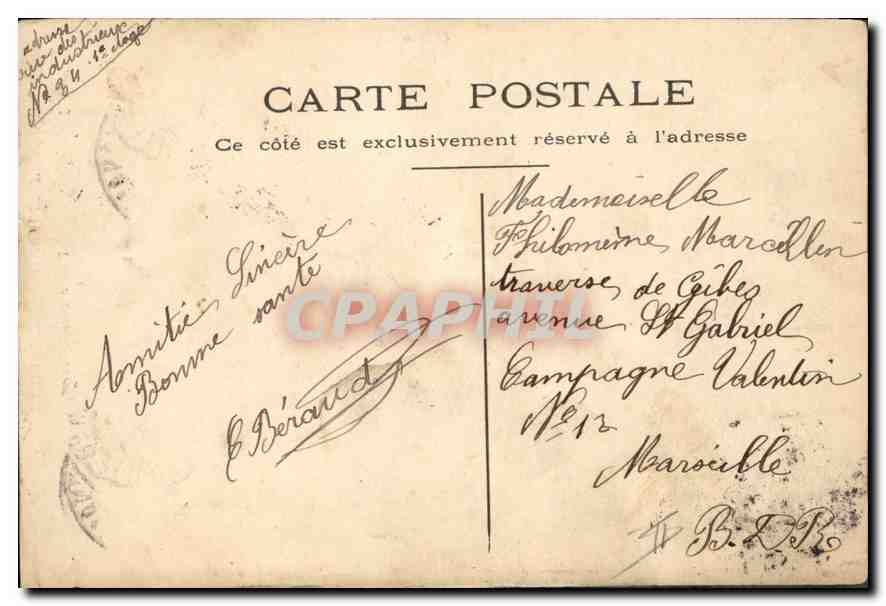 adresse
rue des
industrieux
No 84 1e étage
CARTE POSTALE
Ce côté est exclusivement réservé à l'adresse
Amitié Sincère
Bonne santé
E Béraud
Mademoiselle
Philomène Marcellin
traverse de Gibes
avenue St Gabriel
Campagne Valentin
No 12
Marseille
B. D. R
CPAPHIL